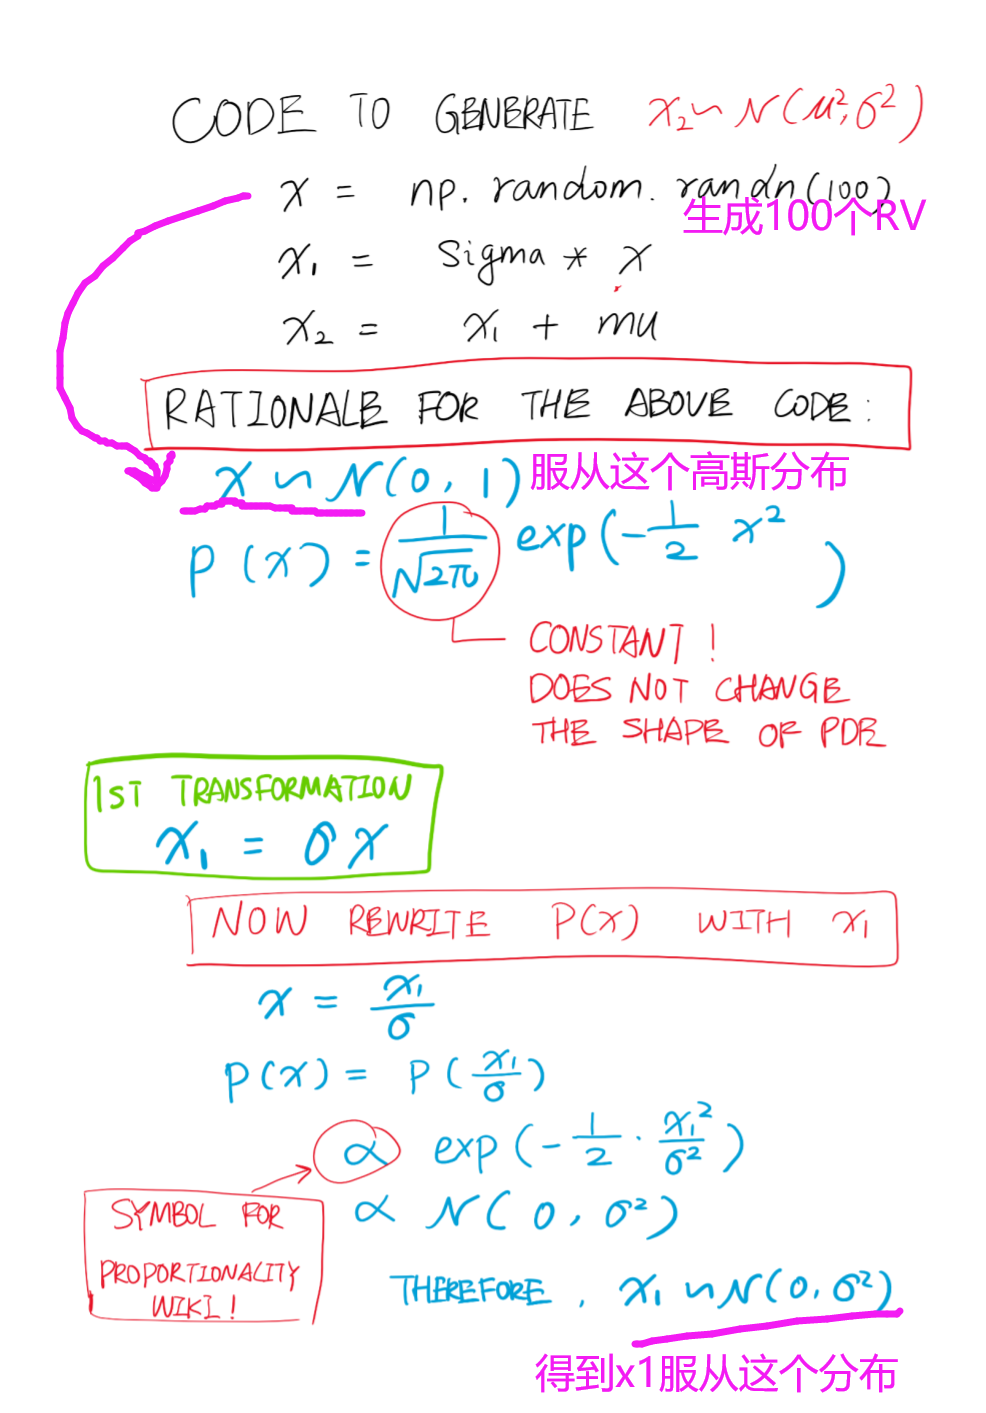 CODE TO GENERATE x₂ ~ N(μ², σ²)
x = np.random.randn(100)
生成100个RV
x₁ = sigma * x
x₂ = x₁ + mu
RATIONALE FOR THE ABOVE CODE:
x ~ N(0, 1) 服从这个高斯分布
P(x) = 1/√2π exp(-1/2 x²)
CONSTANT!
DOES NOT CHANGE
THE SHAPE OF PDF
1ST TRANSFORMATION
x₁ = σx
NOW REWRITE P(x) WITH x₁
x = x₁/σ
P(x) = P(x₁/σ)
∝ exp(-1/2 · x₁²/σ²)
∝ N(0, σ²)
SYMBOL FOR
PROPORTIONALITY
WIKI!
THEREFORE, x₁ ~ N(0, σ²)
得到x1服从这个分布